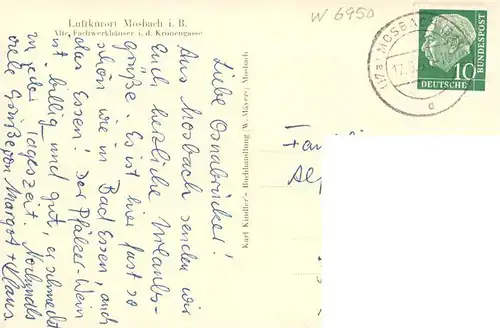 Luftkurort Mosbach i. B.
Alte Fachwerkhäuser i. d. Kronengasse
W 6950
Liebe Osnabrücker!
Aus Mosbach senden wir
Euch herzliche Urlaubs-
grüße. Es ist hier fast so
schön wie in Bad Essen, auch
das Essen! Der Pfälzer-Wein
ist billig und gut, er schmeckt
zu jeder Tageszeit.
viele Grüße von Margot + Klaus.
Karl Kindler's Buchhandlung W. Mayer, Mosbach
(17a) MOSBACH
17.
a
DEUTSCHE
BUNDESPOST
10